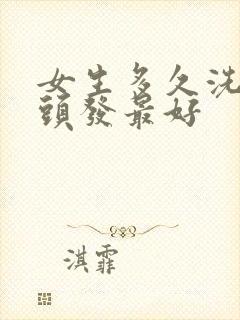 女生多久洗
頭發最好
淇霏